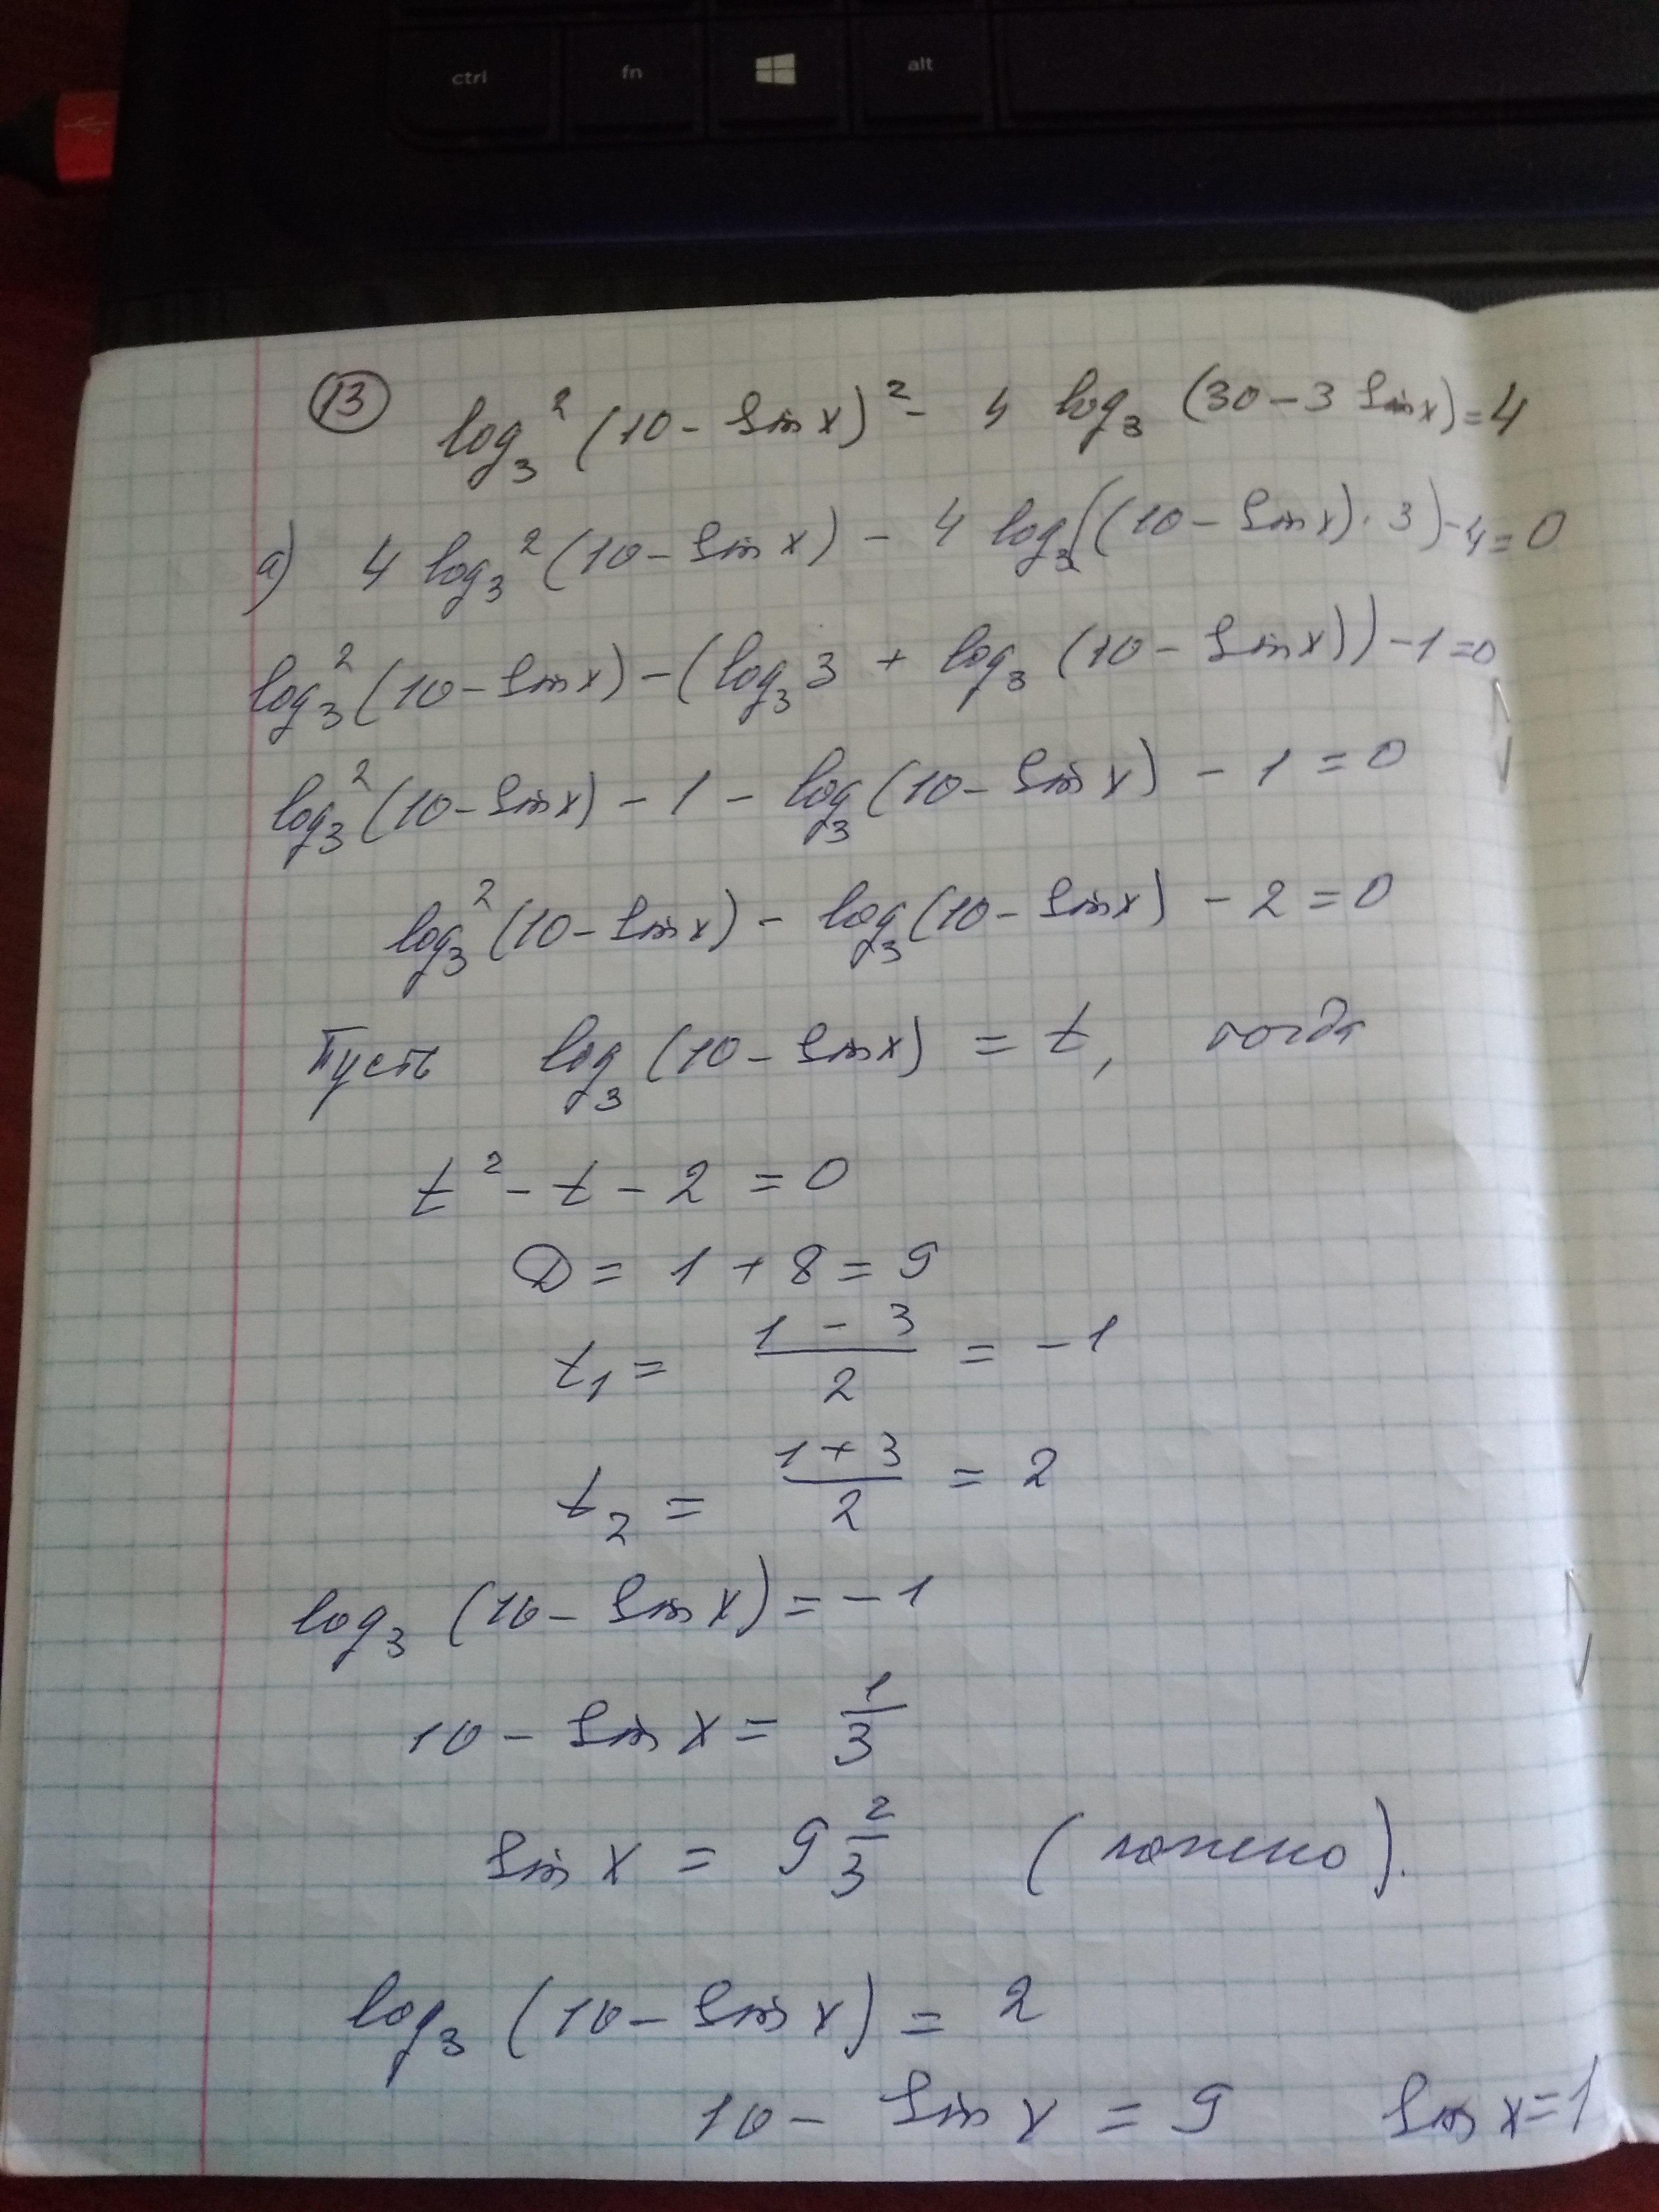 ctrl fn alt
13 log₃²(10 - sin x)² - 4 log₃ (30 - 3 sin x) = 4
а) 4 log₃²(10 - sin x) - 4 log₃((10 - sin x) · 3) - 4 = 0
log₃²(10 - sin x) - (log₃ 3 + log₃ (10 - sin x)) - 1 = 0
log₃²(10 - sin x) - 1 - log₃(10 - sin x) - 1 = 0
log₃²(10 - sin x) - log₃(10 - sin x) - 2 = 0
Пусть log₃(10 - sin x) = t, тогда
t² - t - 2 = 0
D = 1 + 8 = 9
t₁ = (1 - 3)/2 = -1
t₂ = (1 + 3)/2 = 2
log₃ (10 - sin x) = -1
10 - sin x = 1/3
sin x = 9 2/3 (ложно).
log₃ (10 - sin x) = 2
10 - sin x = 9 sin x = 1